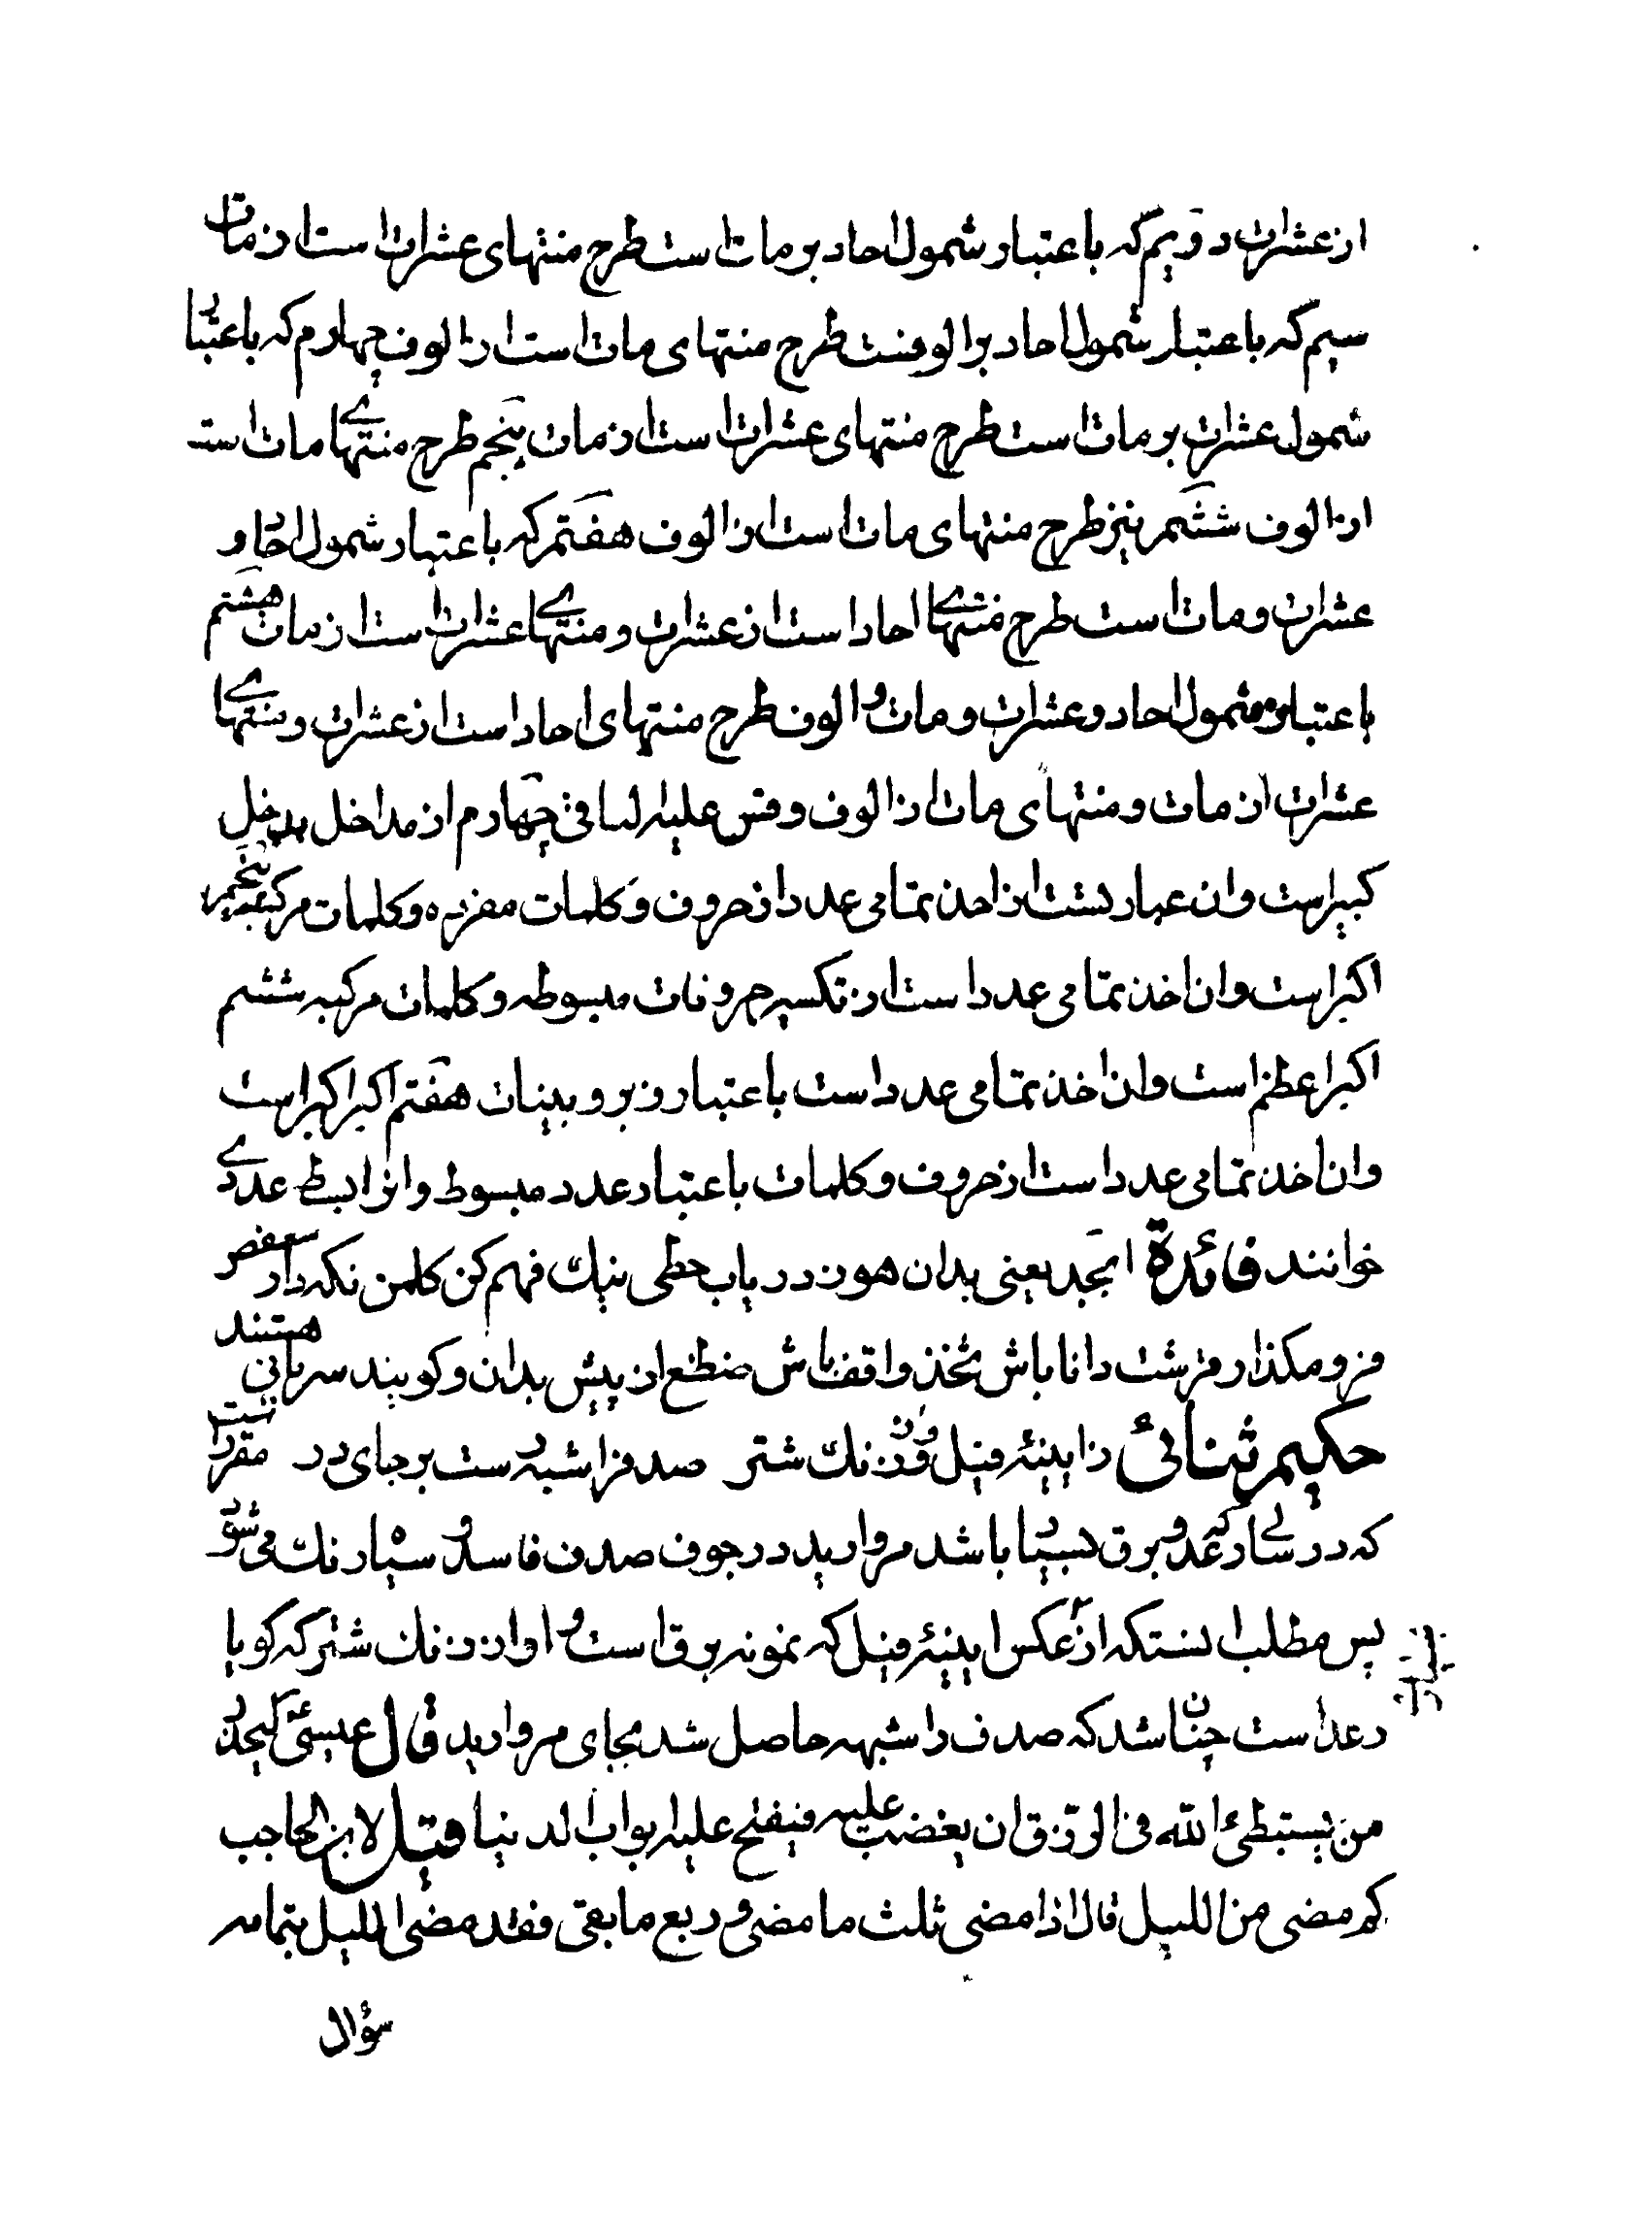 از عشرات دویم که باعتبار شمول احاد بر مات است طرح منتهای عشرات است از مات
سیم که باعتبار شمول احاد بر الوفست طرح منتهای مات است از الوف چهارم که باعتبار
شمول عشرات بر مات است طرح منتهای عشرات است از مات پنجم طرح منتهای مات است
از الوف ششم نیز طرح منتهای مات است از الوف هفتم که باعتبار شمول احاد و
عشرات و مات است طرح منتهای احاد است از عشرات و منتهای عشرات است از مات هشتم
باعتبار شمول احاد و عشرات و مات و الوف طرح منتهای احاد است از عشرات و منتهای
عشرات از مات و منتهای مات از الوف و قس علیه الباقی چهارم از مداخل مدخل
کبیر است وان عبارتست از اخذ تمامی عدد از حروف و کلمات مفرده و کلمات مرکبه پنجم
اکبر است وان اخذ تمامی عدد است از تکسیر حروفات مبسوطه و کلمات مرکبه ششم
اکبر اعظم است وان اخذ تمامی عدد است باعتبار زبر و بینات هفتم اکبر اکبر است
وان اخذ تمامی عدد است از حروف و کلمات باعتبار عدد مبسوط وانرا بسط عددی
خوانند فائدة ابجد یعنی بدان هوز دریاب حطی نیك فهم کن کلمن نکه دار سعفص
فرو مکذار قرشت دانا باش ثخذ واقف باش ضظغ از پیش بدان و کویند سریانی هستند
حکیم ثنائی ز اینهٔ فیل و زنك شتر صدفرا شبه است بر جای در مقرر است
که در سالی که رعد و برق بسیار باشد مروارید در جوف صدف فاسد و سیاه رنك می شود
پس مطلب اینستکه از عکس اینهٔ فیل که نمونه برق است و اواز زنك شتر که کویا
رعد است چنان شد که صدف را شبهه حاصل شد بجای مروارید قال عیسی ع لیحذر
من یستبطئ الله فی الرزق ان یغضب علیه فیفتح علیه ابواب الدنیا قیل لابن الحاجب
کم مضی من اللیل قال اذا مضی ثلث ما مضی و ربع ما بقی فقد مضی اللیل بتمامه
سؤال